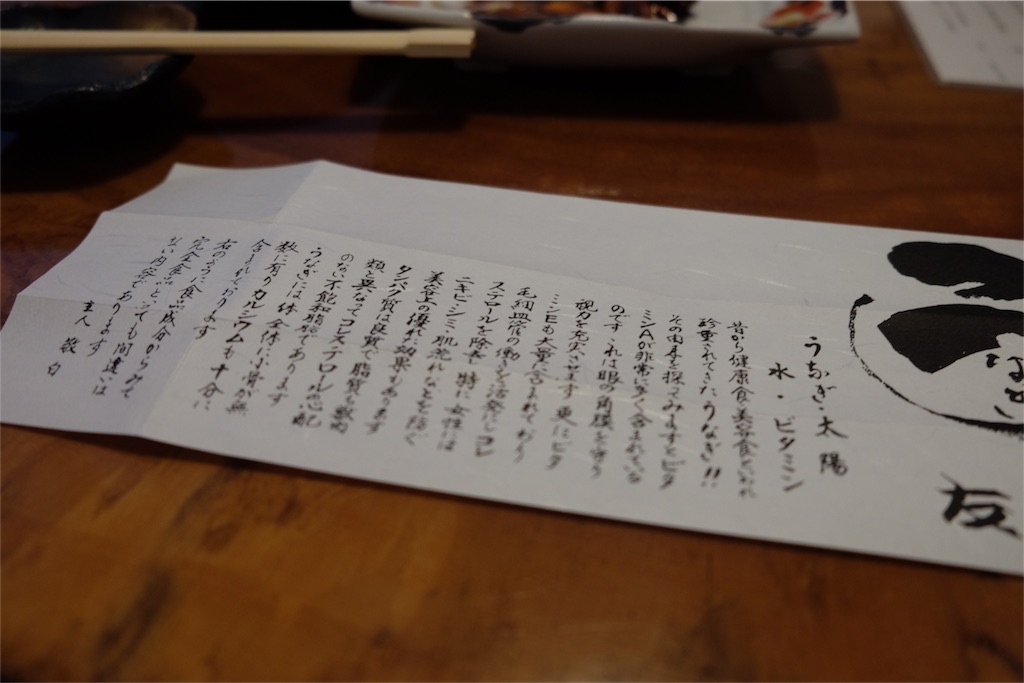 うなぎ・太陽
水・ビタミン
昔から健康食美容食といわれ
珍重されてきたうなぎ!!
その由来を探ってみますとビタ
ミンAが非常に多く含まれている
のです されは眼の角膜を守り
視力を充実させます 更にビタ
ミンEも大量に含まれており
毛細血管の働きを活発にしコレ
ステロールを除去 特に女性には
ニキビ・シミ・肌荒れなどを防ぐ
美容上の優れた効果もあります
タンパク質は良質で脂質も獣肉
類と異なってコレステロールの心配
のない不飽和脂肪であります
うなぎには体全体に小骨が無
数に有りカルシウムも十分に
含まれております
右のように食品成分からみて
完全食品といっても間違いは
ない内容であります
主人 敬白
友